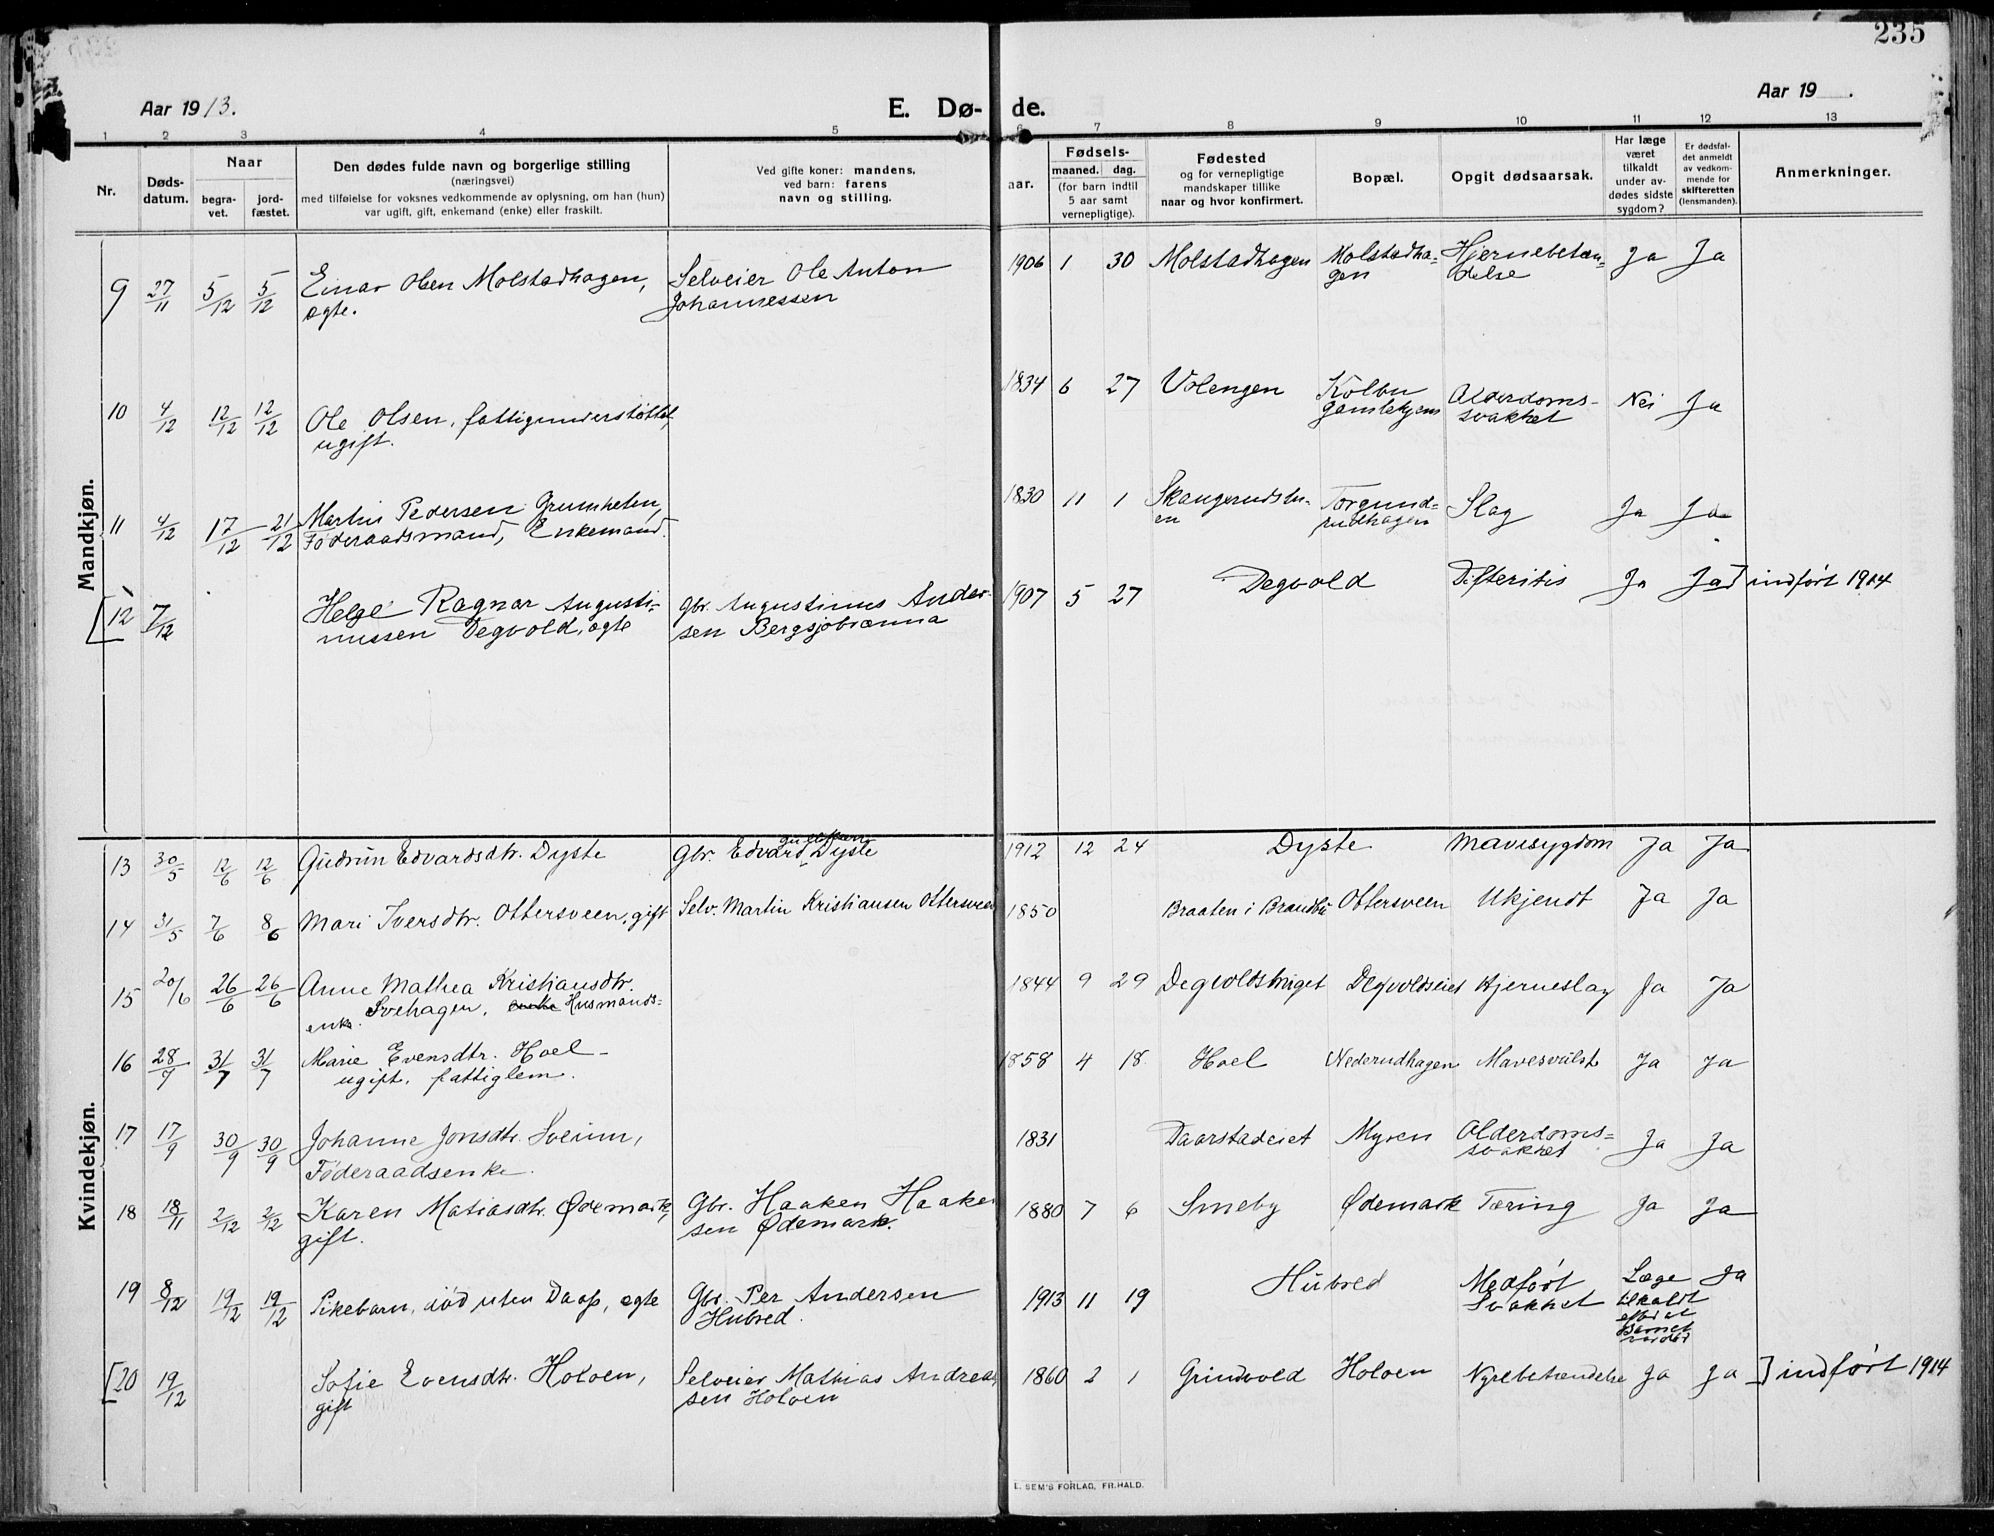 235
Aar 1913.
E. Dø- de.
Aar 19 .
1 2 3 4 5 6 7 8 9 10 11 12 13
Nr.
Døds-
datum.
Naar
begra-
vet.
jord-
fæstet.
Den dødes fulde navn og borgerlige stilling
(næringsvei)
med tilføielse for voksnes vedkommende av oplysning, om han (hun)
var ugift, gift, enkemand (enke) eller fraskilt.
Ved gifte koner: mandens,
ved barn: farens
navn og stilling.
aar.
Fødsels-
maaned. dag.
(for barn indtil
5 aar samt
vernepligtige).
Fødested
og for vernepligtige
mandskaper tillike
naar og hvor konfirmert.
Bopæl.
Opgit dødsaarsak.
Har læge
været
tilkaldt
under av-
dødes sidste
sygdom?
Er dødsfal-
det anmeldt
av vedkom-
mende for
skifteretten
(lensmanden).
Anmerkninger.
Mandkjøn.
9 27/11 5/12 5/12 Einar Olsen Molstadhagen, Selveier Ole Anton 1906 1 30 Molstadhagen Molstadha- Hjernebetæn- Ja Ja
ægte. Johannessen gen delse
10 4/12 12/12 12/12 Ole Olsen, fattigunderstøttet, 1834 6 27 Volengen Kolbu Alderdoms- Nei Ja
ugift. gamlehjem svakhet
11 4/12 17/12 21/12 Martin Pedersen Grumheten, 1830 11 1 Skangerudstu- Torgund- Slag Ja Ja
Føderaadsmand, Enkemand. en rudhagen
[12 7/12 Helge Ragnar Augusti- Gbr. Augustinus Ander- 1907 5 27 Degvold Difteritis Ja Ja] indført 1914
nussen Degvold, ægte sen Bergsjobrænna
Kvindekjøn.
13 30/5 12/6 12/6 Gudrun Edvardsdtr. Dyste Gbr. Edvard Dyste 1912 12 24 Dyste Mavesygdom Ja Ja
14 31/5 7/6 8/6 Mari Iversdtr. Ottersveen, gift Selv. Martin Kristiansen Ottersveen 1850 Braaten i Brandbu Ottersveen Ukjendt Ja Ja
15 20/6 26/6 26/6 Anne Mathea Kristiansdtr. 1844 9 29 Degvoldshuget Degvoldseiet Hjerneslag Ja Ja
Svehagen, enke Husmands-
enke.
16 28/7 31/7 31/7 Marie Evensdtr. Hoel - 1858 4 18 Hoel Nederudhagen Mavesvulst Ja Ja
ugift, fattiglem.
17 17/9 30/9 30/9 Johanne Jonsdtr. Sveium, 1831 Daarstadeiet Myren Alderdoms- Ja Ja
Føderaadsenke. svakhet
18 18/11 2/12 2/12 Karen Matiasdtr. Ødemark, Gbr. Haaken Haaken 1880 7 6 Smeby Ødemark Tæring Ja Ja
gift. sen Ødemark.
19 8/12 19/12 19/12 Pikebarn, død uten Daap, ægte Gbr. Per Andersen 1913 11 19 Hubred Medført Læge Ja
Hubred. Svakhet tilkaldt
efter at
Barnet
var død
[20 19/12 Sofie Evensdtr. Holoen, Selveier Mathias Andrea- 1860 2 1 Grindvold Holoen Nyrebetændelse Ja Ja] indført 1914
gift sen Holoen
E. SEM'S FORLAG, FR.HALD.